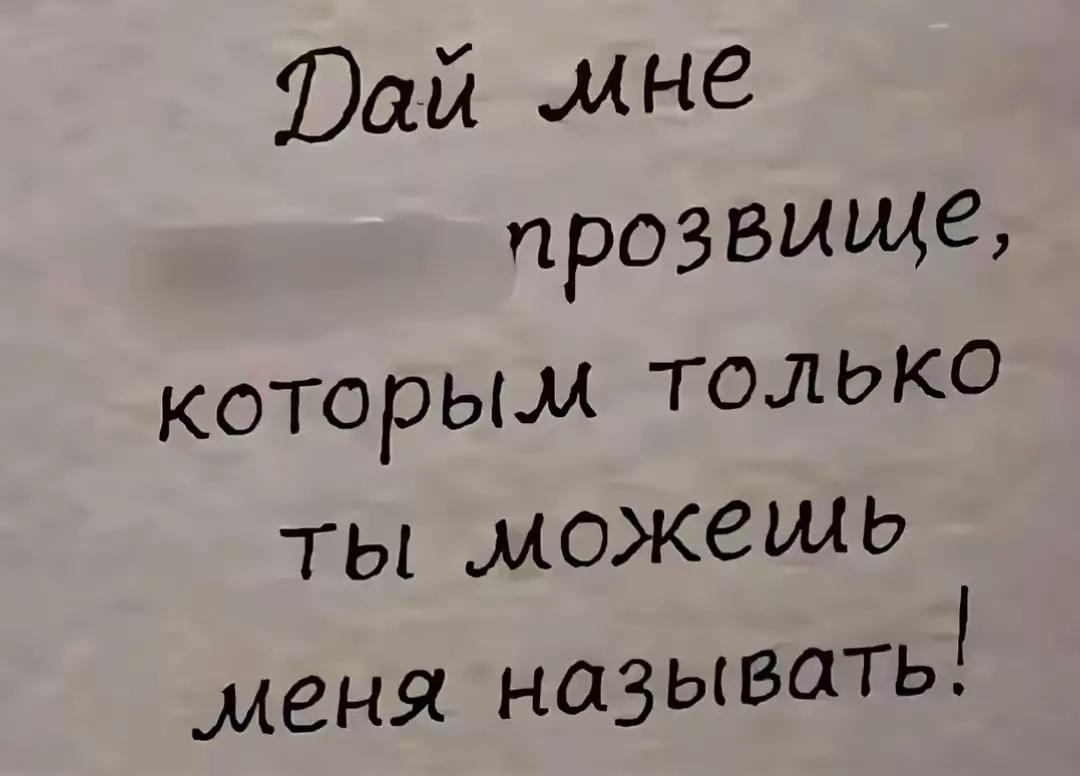 Дай мне
прозвище,
которым только
ты можешь
меня называть!